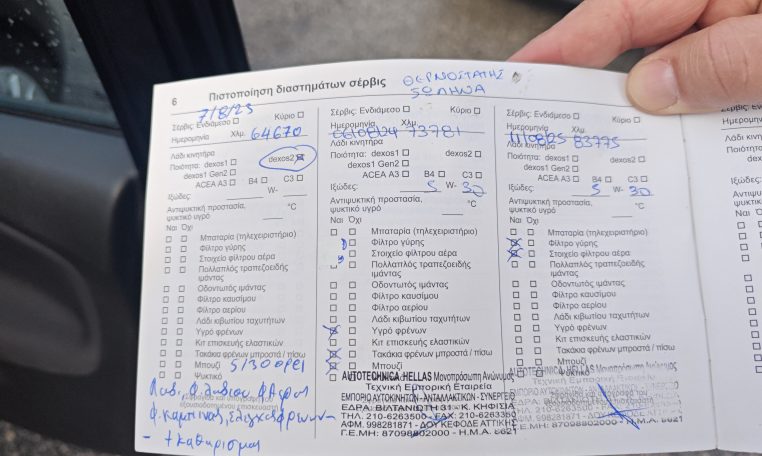 6 Πιστοποίηση διαστημάτων σέρβις ΘΕΡΜΟΣΤΑΤΗΣ
ΣΩΛΗΝΑ
7/8/23
Σέρβις: Ενδιάμεσο Κύριο
Ημερομηνία Χλμ. 64670
Λάδι κινητήρα
Ποιότητα: dexos1 dexos2
dexos1 Gen2
ACEA A3 B4 C3
Ιξώδες: W-
Αντιψυκτική προστασία, °C
ψυκτικό υγρό
Ναι Όχι
Μπαταρία (τηλεχειριστήριο)
Φίλτρο γύρης
Στοιχείο φίλτρου αέρα
Πολλαπλός τραπεζοειδής
ιμάντας
Οδοντωτός ιμάντας
Φίλτρο καυσίμου
Φίλτρο αερίου
Λάδι κιβωτίου ταχυτήτων
Υγρό φρένων
Κιτ επισκευής ελαστικών
Τακάκια φρένων μπροστά / πίσω
Μπουζί 5/30 opel
Ψυκτικό
+ καθαρισμός
Σέρβις: Ενδιάμεσο Κύριο
Ημερομηνία Χλμ. 73781
Λάδι κινητήρα
Ποιότητα: dexos1 dexos2
dexos1 Gen2
ACEA A3 B4 C3
Ιξώδες: 5 W- 30
Αντιψυκτική προστασία, °C
ψυκτικό υγρό
Ναι Όχι
Μπαταρία (τηλεχειριστήριο)
Φίλτρο γύρης
Στοιχείο φίλτρου αέρα
Πολλαπλός τραπεζοειδής
ιμάντας
Οδοντωτός ιμάντας
Φίλτρο καυσίμου
Φίλτρο αερίου
Λάδι κιβωτίου ταχυτήτων
Υγρό φρένων
Κιτ επισκευής ελαστικών
Τακάκια φρένων μπροστά / πίσω
Μπουζί
AUTOTECHNICA HELLAS Μονοπρόσωπη Ανώνυμος
Τεχνική Εμπορική Εταιρεία
ΕΜΠΟΡΙΟ ΑΥΤΟΚΙΝΗΤΩΝ-ΑΝΤΑΛΛΑΚΤΙΚΩΝ-ΣΥΝΕΡΓΕΙΟ
ΕΔΡΑ: ΒΙΛΤΑΝΙΩΤΗ 31 - Κ. ΚΗΦΙΣΙΑ
ΤΗΛ. 210-6263500 - FAX: 210-6263350
ΑΦΜ. 998281871 - ΔΟΥ ΚΕΦΟΔΕ ΑΤΤΙΚΗΣ
Γ.Ε.ΜΗ: 87098802000 - Η.Μ.Α. 6621
Σέρβις: Ενδιάμεσο Κύριο
Ημερομηνία Χλμ. 83775
Λάδι κινητήρα
Ποιότητα: dexos1 dexos2
dexos1 Gen2
ACEA A3 B4 C3
Ιξώδες: 5 W- 30
Αντιψυκτική προστασία, °C
ψυκτικό υγρό
Ναι Όχι
Μπαταρία (τηλεχειριστήριο)
Φίλτρο γύρης
Στοιχείο φίλτρου αέρα
Πολλαπλός τραπεζοειδής
ιμάντας
Οδοντωτός ιμάντας
Φίλτρο καυσίμου
Φίλτρο αερίου
Λάδι κιβωτίου ταχυτήτων
Υγρό φρένων
Κιτ επισκευής ελαστικών
Τακάκια φρένων μπροστά / πίσω
Μπουζί